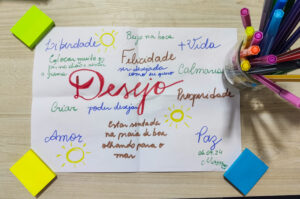 Liberdade
Beijo na boca
+ Vida
Felicidade
ser desejada
como eu quero
Calmaria
Desejo
Prosperidade
Criar
poder desejar
Estar sentada
na praia de boa
olhando para o
mar
Amor
Paz